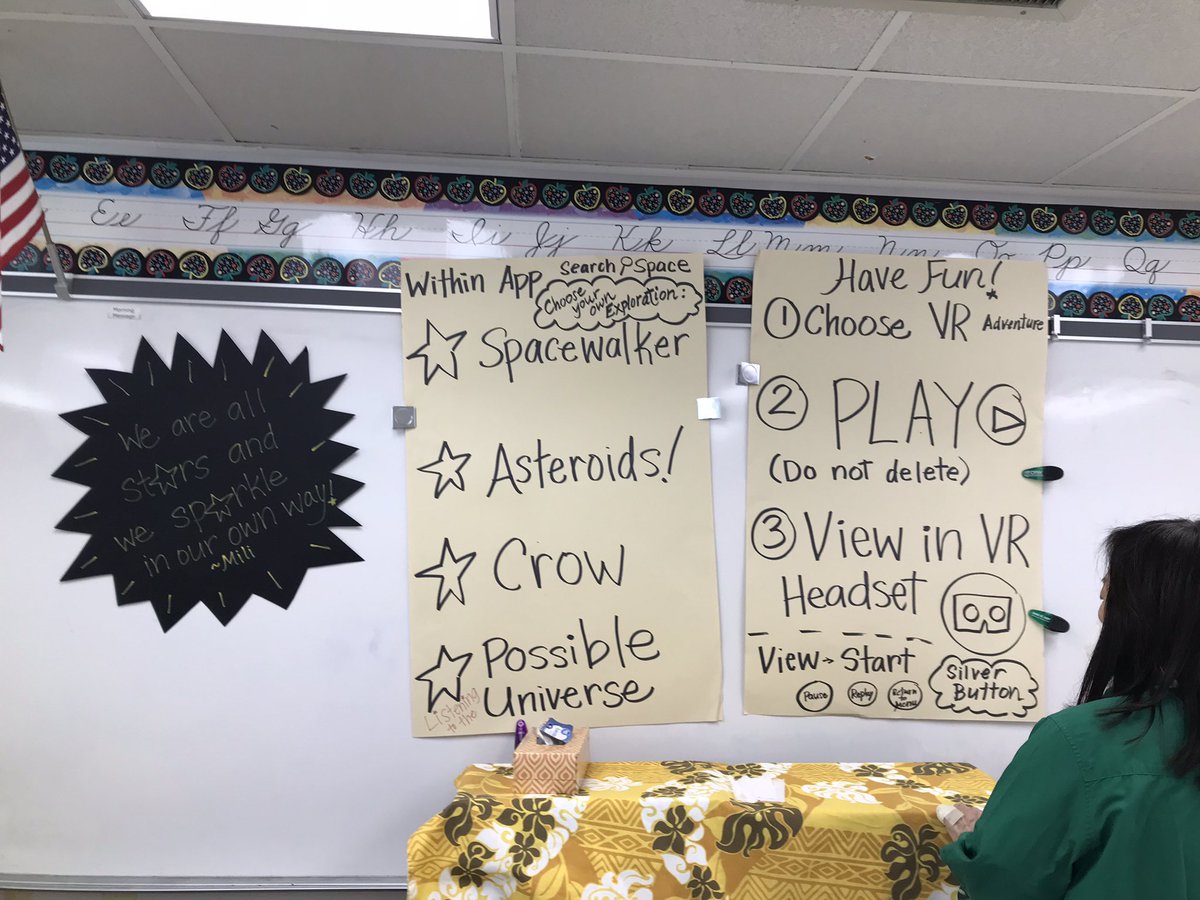 Ee Ff Gg Hh Ii Jj Kk Ll Mm Nn Oo Pp Qq
Morning
Message
We are all
stars and
we sparkle
in our own way!
~Mili
Within App
Search Space
Choose
your own
Exploration:
Spacewalker
Asteroids!
Crow
Possible
Universe
Listening
to the
Have Fun!
1 Choose VR Adventure
2 PLAY
(Do not delete)
3 View in VR
Headset
View → Start
Pause Replay Return
to
Menu
Silver
Button